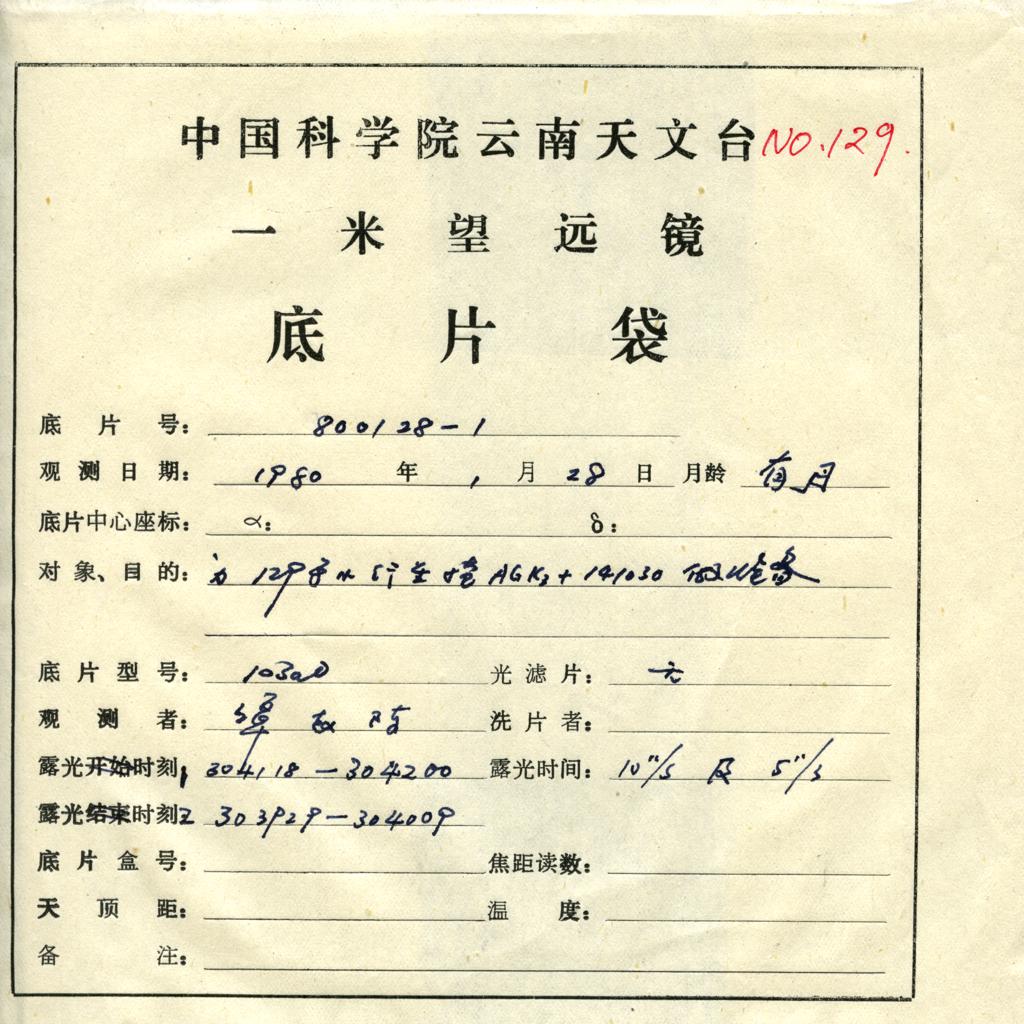 中国科学院云南天文台 NO.129.
一米望远镜
底片袋
底片号: 800128-1
观测日期: 1980 年 1 月 28 日 月龄 有月
底片中心座标: α: δ:
对象、目的: 为 129号小行星掩 AGK3+141030 做准备
底片型号: 103aD 光滤片: 无
观测者: 洗片者:
露光开始时刻1 304118-304200 露光时间: 10"/s 及 5"/s
露光结束时刻2 303929-304009
底片盒号: 焦距读数:
天顶距: 温度:
备注: